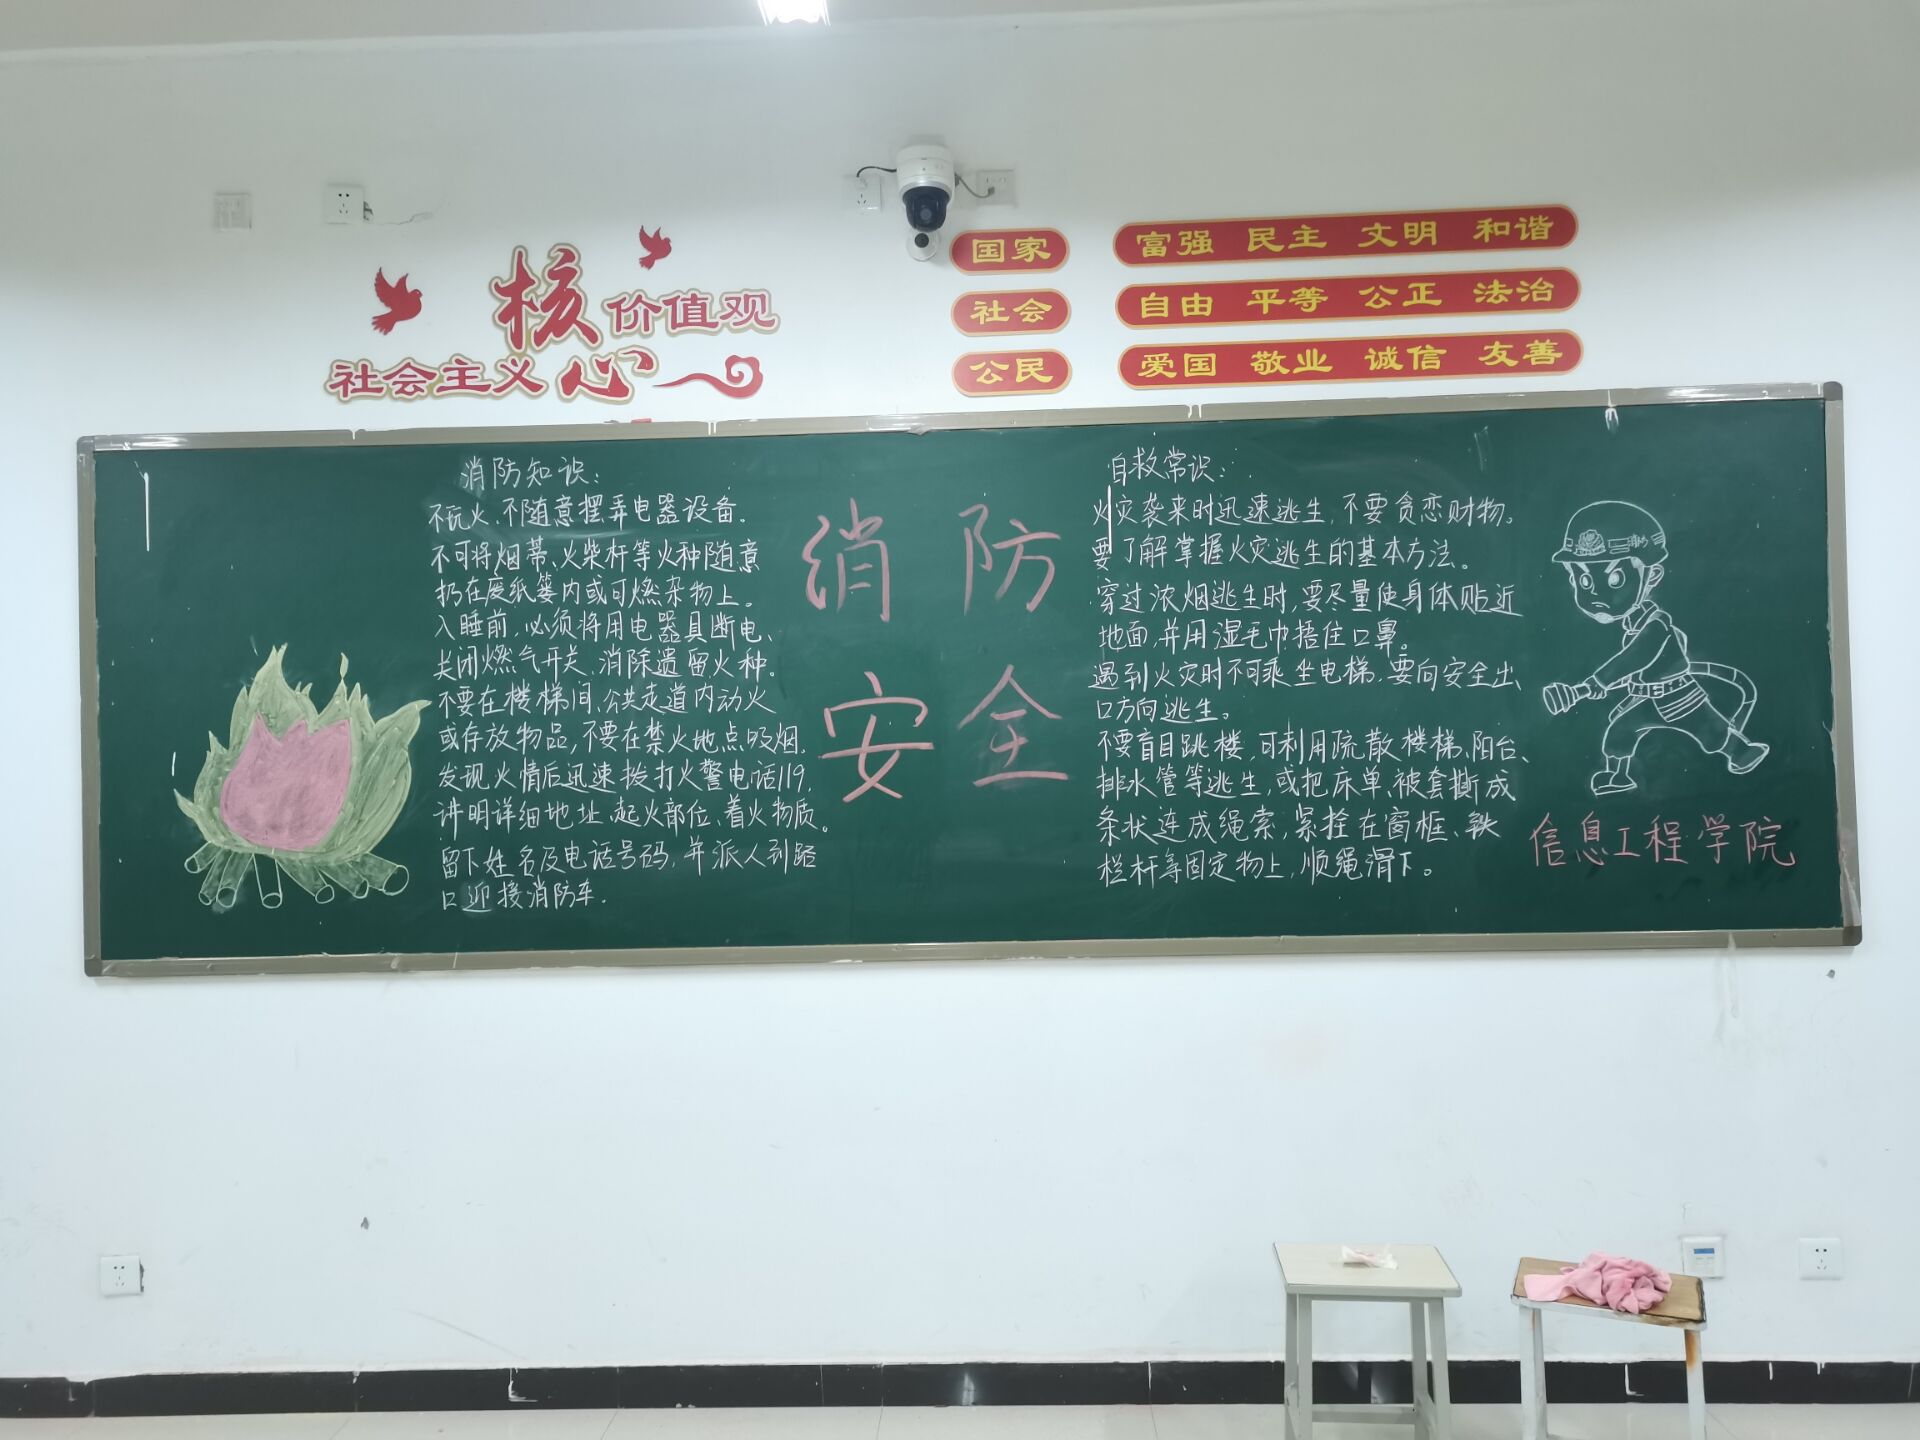 核价值观
社会主义心
国家 富强 民主 文明 和谐
社会 自由 平等 公正 法治
公民 爱国 敬业 诚信 友善
消防知识:
不玩火、不随意摆弄电器设备。
不可将烟蒂、火柴杆等火种随意
扔在废纸篓内或可燃杂物上。
入睡前,必须将用电器具断电、
关闭燃气开关,消除遗留火种。
不要在楼梯间、公共走道内动火
或存放物品,不要在禁火地点吸烟,
发现火情后迅速拨打火警电话119,
讲明详细地址、起火部位、着火物质。
留下姓名及电话号码,并派人到路
口迎接消防车.
消防
安全
自救常识:
火灾袭来时迅速逃生,不要贪恋财物。
要了解掌握火灾逃生的基本方法。
穿过浓烟逃生时,要尽量使身体贴近
地面,并用湿毛巾捂住口鼻。
遇到火灾时不可乘坐电梯,要向安全出
口方向逃生。
不要盲目跳楼,可利用疏散楼梯、阳台、
排水管等逃生,或把床单、被套撕成
条状连成绳索,紧拴在窗框、铁
栏杆等固定物上,顺绳滑下。
消防
信息工程学院